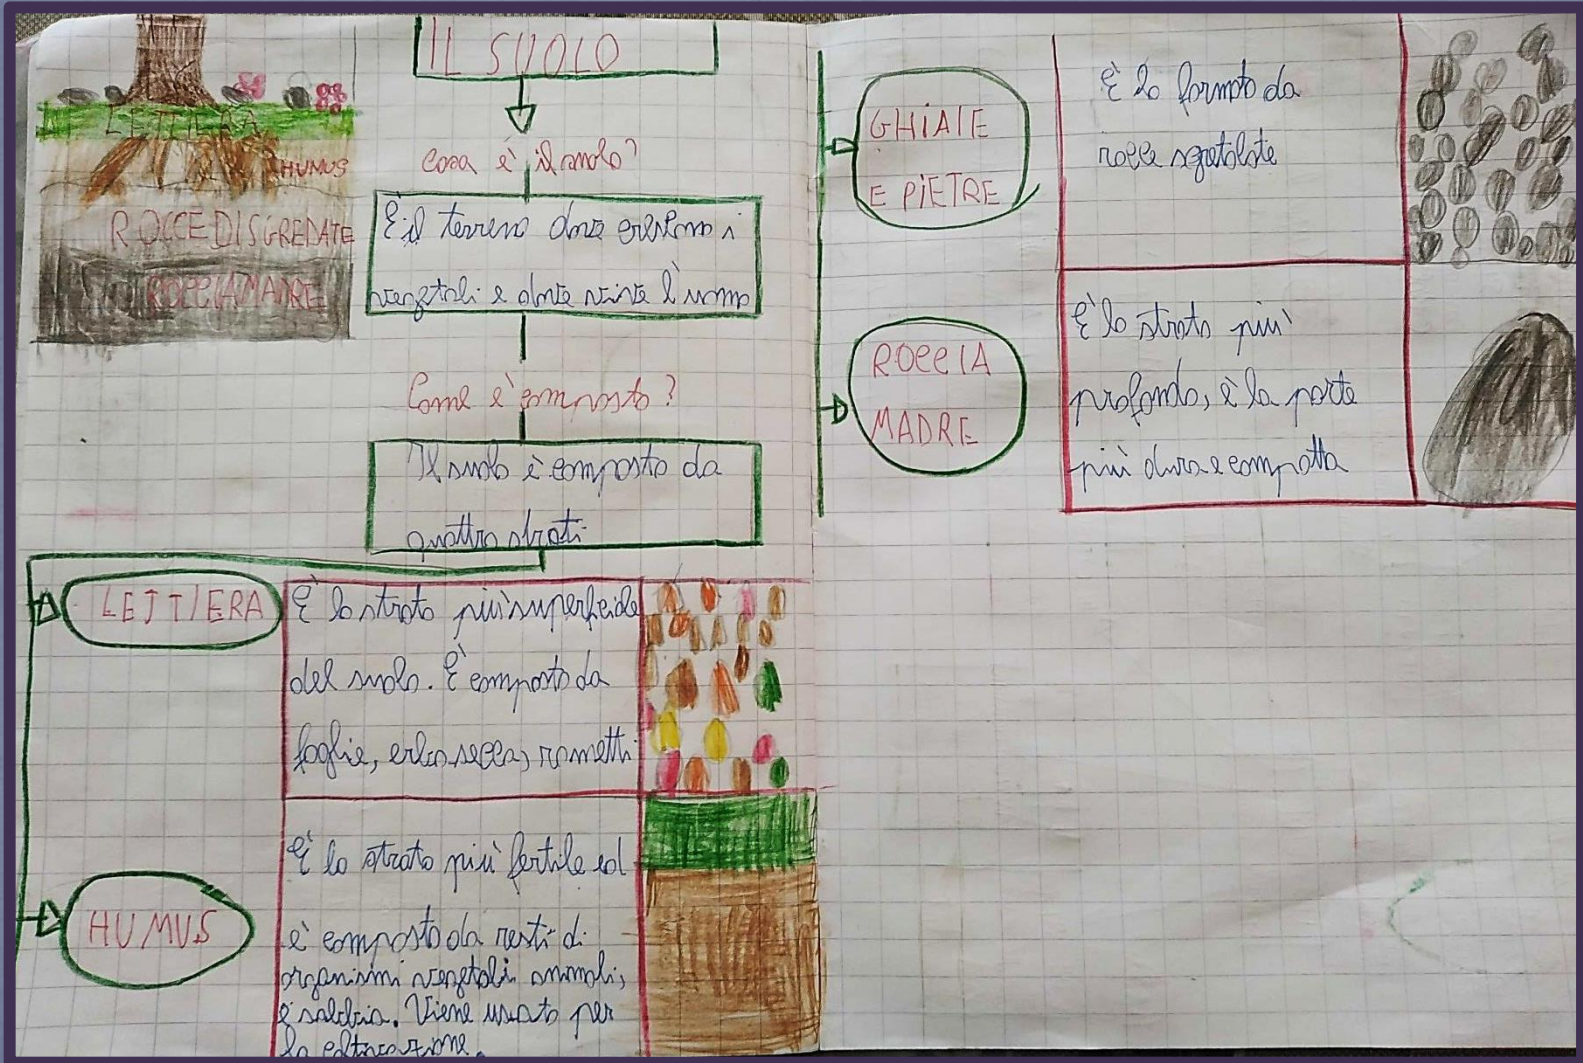 IL SUOLO
LETTIERA
HUMUS
ROCCE DISGREDATE
ROCCIA MADRE
Cosa è il suolo?
È il terreno dove crescono i
vegetali e dove vive l'uomo
Come è composto?
Il suolo è composto da
quattro strati
LETTIERA
È lo strato più superficiale
del suolo. È composto da
foglie, erba secca, rametti
HUMUS
È lo strato più fertile ed
è composto da resti di
organismi vegetali animali,
e sabbia. Viene usato per
la coltivazione.
GHIAIE
E PIETRE
È lo formato da
rocce sgretolate
ROCCIA
MADRE
È lo strato più
profondo, è la parte
più dura e compatta